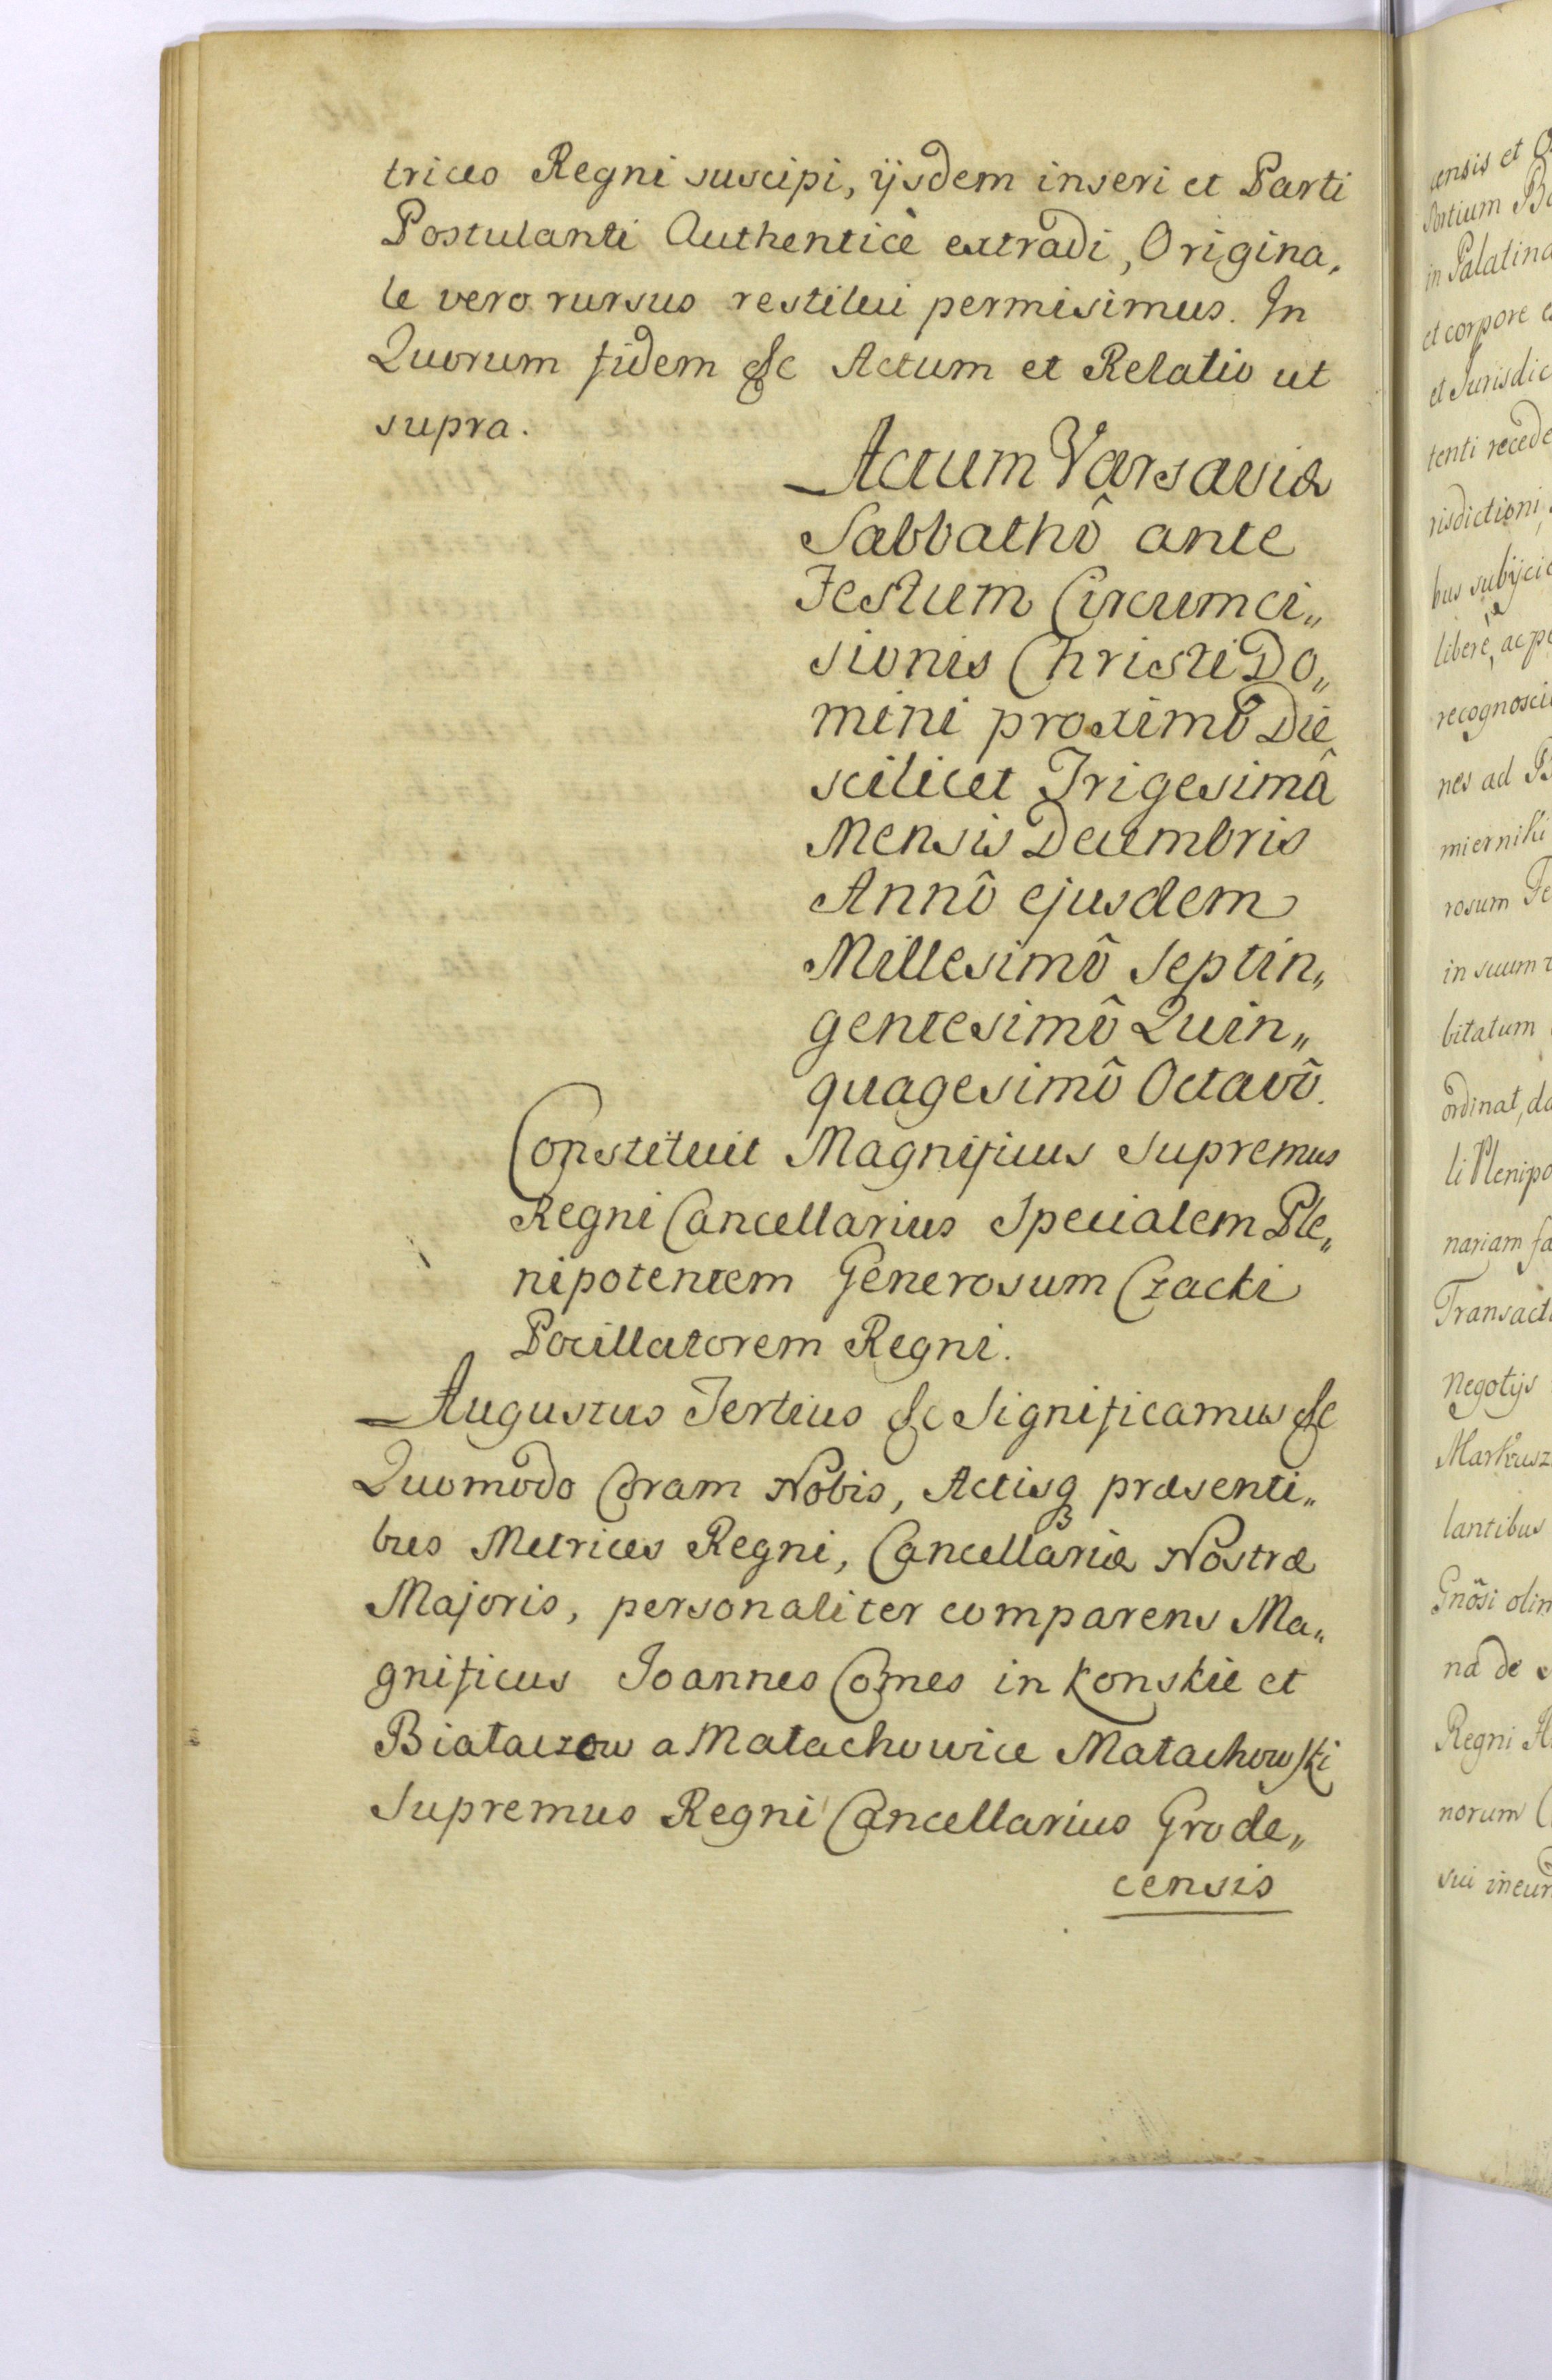 trices Regni suscipi, ijsdem inseri et Parti
Postulanti Authenticè extradi, Origina„
le vero rursus restitui permisimus. In
Quorum fidem &c Actum et Relatio ut
supra.
Actum Varsaviæ
Sabbathô ante
Festum Circumci„
sionis Christi Do„
mini proximô Die
scilicet Trigesimâ
Mensis Decembris
Annô ejusdem
Millesimô Septin„
gentesimô Quin„
quagesimô Octavô.
Constituit Magnificus Supremus
Regni Cancellarius Specialem Ple„
nipotentem Generosum Czacki
Pocillatorem Regni.
Augustus Tertius &c Significamus &c
Quomodo Coram Nobis, Actisq præsenti„
bus Metrices Regni, Cancellariæ Nostræ
Majoris, personaliter comparens Ma„
gnificus Joannes Comes in Konskie et
Białaczow a Małachowice Małachowski
Supremus Regni Cancellarius Grode„
censis
censis et
in Palatina
et corpore
et Jurisdic
tenti recede
risdictioni
bus subijcie
libere, ac pe
recognosci
nes ad
mierniki
rosum
in suum
bitatum
ordinat, da
li Plenipo
nariam fa
Transact
Negotijs
lantibus
Gnôsi olim
na de
Regni
norum
sui ineun